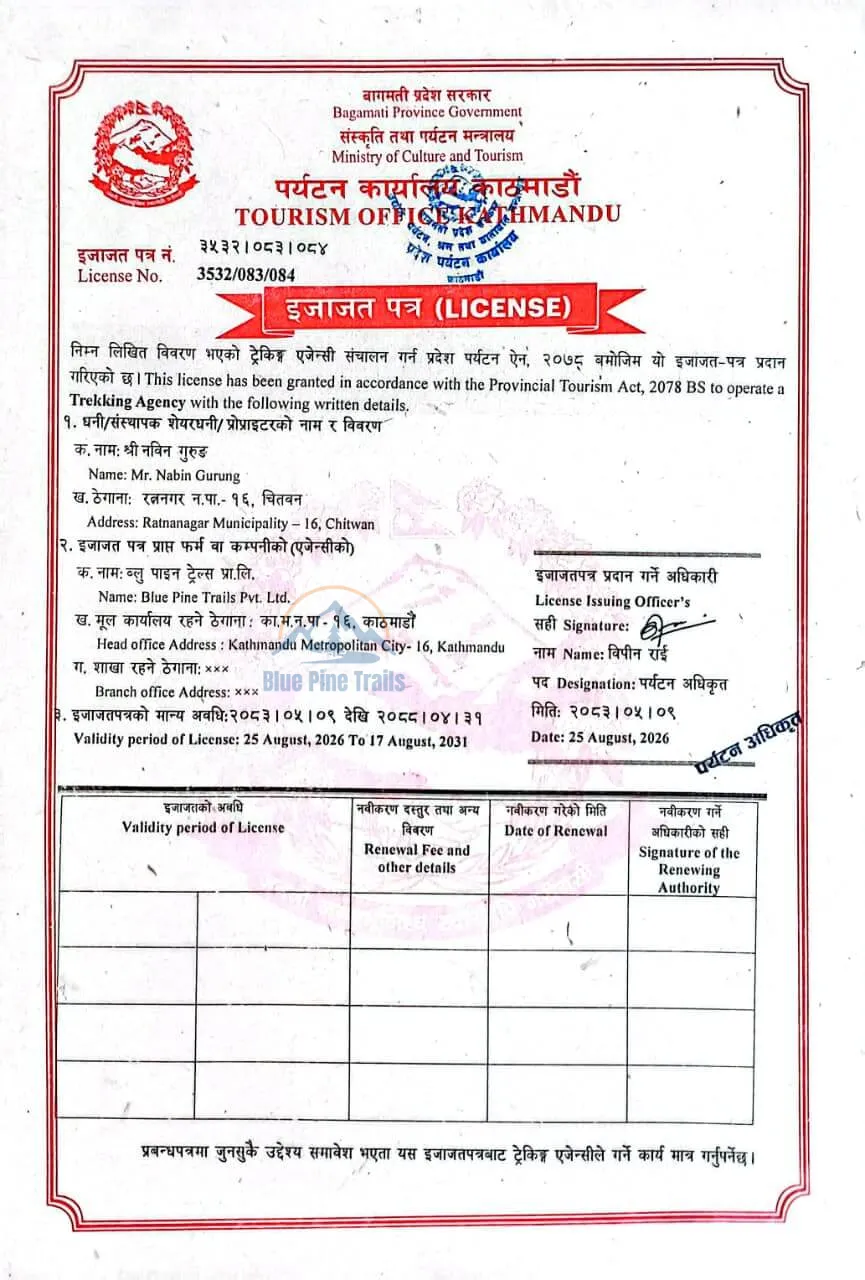 बागमती प्रदेश सरकार
Bagamati Province Government
संस्कृति तथा पर्यटन मन्त्रालय
Ministry of Culture and Tourism
पर्यटन कार्यालय, काठमाडौं
TOURISM OFFICE KATHMANDU
प्रदेश पर्यटन कार्यालय
काठमाडौं
इजाजत पत्र नं. ३५३२।०८३।०८४
License No. 3532/083/084
इजाजत पत्र (LICENSE)
निम्न लिखित विवरण भएको ट्रेकिङ्ग एजेन्सी संचालन गर्न प्रदेश पर्यटन ऐन, २०७८ बमोजिम यो इजाजत-पत्र प्रदान
गरिएको छ। This license has been granted in accordance with the Provincial Tourism Act, 2078 BS to operate a
Trekking Agency with the following written details.
१. धनी/संस्थापक शेयरधनी/ प्रोप्राइटरको नाम र विवरण
क. नाम: श्री नविन गुरुङ
Name: Mr. Nabin Gurung
ख. ठेगाना: रत्ननगर न.पा.- १६, चितवन
Address: Ratnanagar Municipality – 16, Chitwan
२. इजाजत पत्र प्राप्त फर्म वा कम्पनीको (एजेन्सीको)
क. नाम: ब्लु पाइन ट्रेल्स प्रा.लि.
Name: Blue Pine Trails Pvt. Ltd.
ख. मूल कार्यालय रहने ठेगाना: का.म.न.पा - १६, काठमाडौं
Head office Address : Kathmandu Metropolitan City- 16, Kathmandu
ग. शाखा रहने ठेगाना: ×××
Branch office Address: ×××
Blue Pine Trails
३. इजाजतपत्रको मान्य अवधि:२०८३।०५।०९ देखि २०८८।०४।३१
Validity period of License: 25 August, 2026 To 17 August, 2031
इजाजतपत्र प्रदान गर्ने अधिकारी
License Issuing Officer's
सही Signature:
नाम Name: विपीन राई
पद Designation: पर्यटन अधिकृत
मिति: २०८३।०५।०९
Date: 25 August, 2026
पर्यटन अधिकृत
इजाजतको अवधि
Validity period of License
नवीकरण दस्तुर तथा अन्य
विवरण
Renewal Fee and
other details
नवीकरण गरेको मिति
Date of Renewal
नवीकरण गर्ने
अधिकारीको सही
Signature of the
Renewing
Authority
प्रबन्धपत्रमा जुनसुकै उद्देश्य समावेश भएता यस इजाजतपत्रबाट ट्रेकिङ्ग एजेन्सीले गर्ने कार्य मात्र गर्नुपर्नेछ।